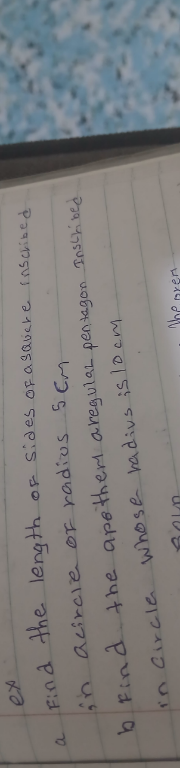 ex
a Find the length of sides of a square inscribed
in a circle of radius 5 cm
b Find the apothem a regular pentagon Inscribed
in circle whose radius is 10 cm
Soln
The area